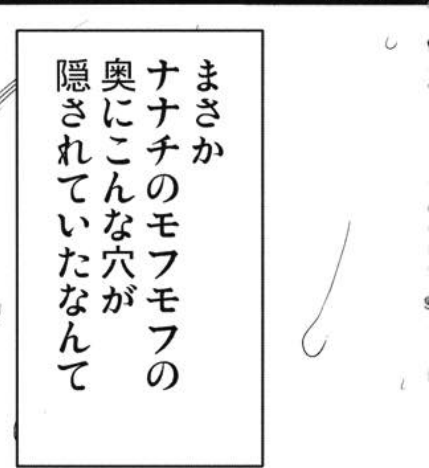 まさか
ナナチのモフモフの
奥にこんな穴が
隠されていたなんて